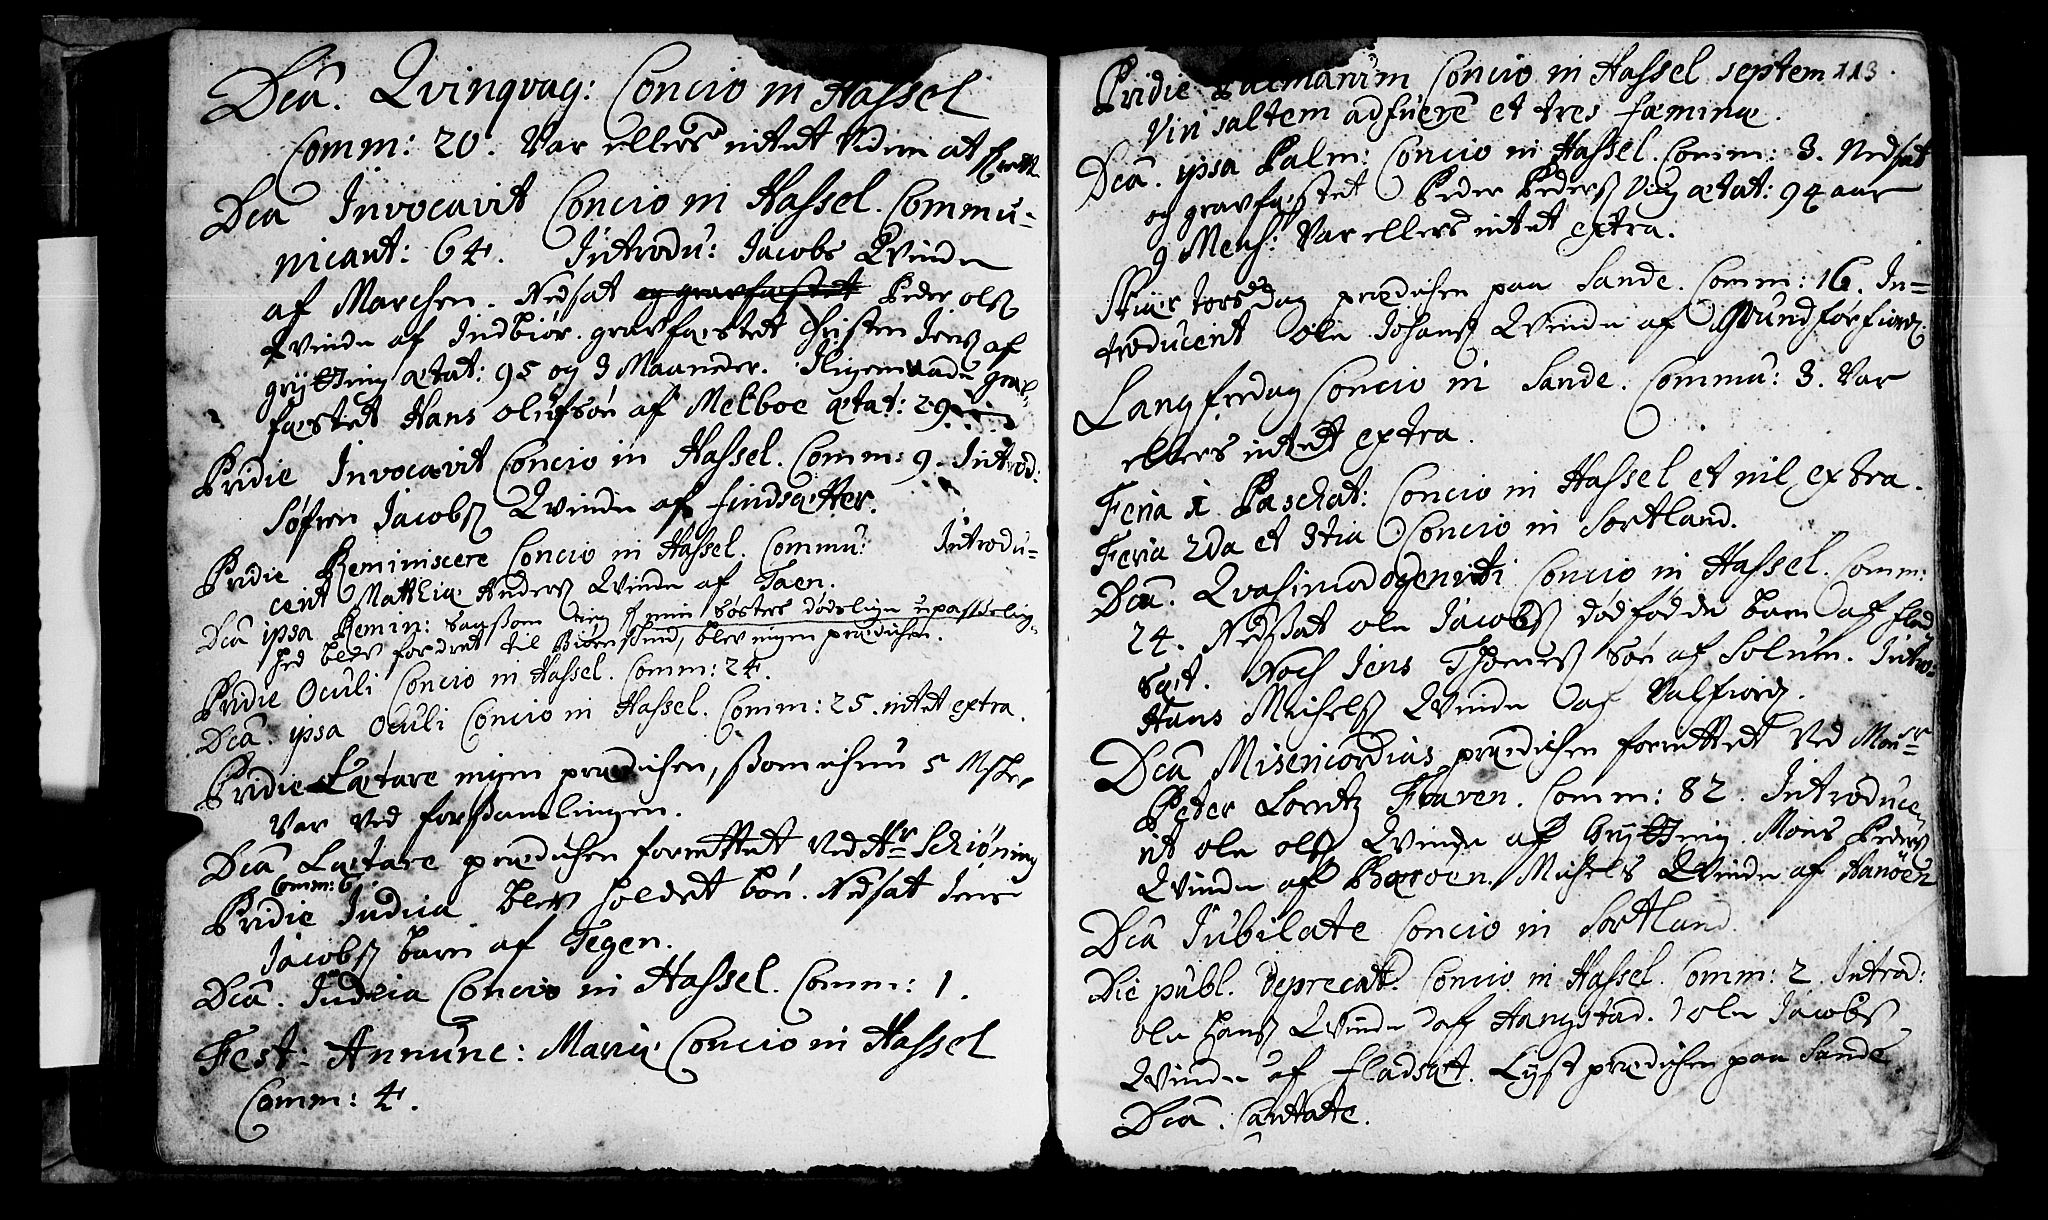 Dcâ. Qvinqvag: Concio in Hassel
Comm: 20. Var ellers intet videre at
Dca Invocavit Concio in Hassel. Commu-
nicant: 64. Introdu: Jacobs Qvinde
af Marchsen. Nedsat og gravfæstet Peder Ols
Qvinde af Indbiør. gravfæstet Christen Jens af
grytting ætat: 95 og 3 Maaneder. Iligemaade grav-
fæstet Hans Olufsøn af Melboe ætat: 29.
Pridie Invocavit Concio in Hassel. Comm: 9. Introd:
Søfren Jacobs Qvinde af findsætter.
Pridie Reminiscere Concio in Hassel. Commu: Introdu-
cent Matthiæ Anders Qvinde af Taen.
Dcâ ipsa Remin: saasom ieg min søsters dødelige upasselig-
hed blev fordret til Biørnsund, blev ingen prædichen.
Pridie Oculi Concio in Hassel. Comm: 24.
Dcâ. ipsa Oculi Concio in Hassel. Comm: 25. intet extra.
Pridie Lætare ingen prædichen, ssom ichun 5 Msher
var ved forssamlingen.
Dcâ Lætare prædichen forrettet ved Hr Schiøning
Comm: 6
Pridie Judica blev holdet bøn. Nedsat Jens
Jacobs barn af Tegen.
Dcâ. Judica Concio in Hassel. Comm: 1.
Fest: Annunc: Mariæ. Concio in Hassel
Comm: 4.
113.
Pridie Palmarum Concio in Hassel. septem
viri saltem adfuere et tres fæminæ.
Dcâ. ipsa Palm: Concio in Hassel. Comm: 3. Nedsat
og gravfæstet Peder Peders ætat: 94 aar
9 Mens: Var ellers intet extra.
Skiær torsdag prædichen paa Sande. Comm: 16. In-
troducent Ole Johans Qvinde af Gundførfiord.
Langfredag Concio in Sande. Commu: 3. Var
ellers intet extra.
Feria 1 Paschat: Concio in Hassel et nil extra.
Feria 2da et 3tia Concio in Sortland.
Dca. Qvasimodogeniti Concio in Hassel. Comm:
24. Nedssat Ole Jacobs dødfødde barn af flad
sæt. Noch Jens Thomes søn af Solum. Intro:
Hans Michels Qvinde af Valfiord.
Dcâ Misericordias prædichen forrettet ved Monsr
Peter Lorntz Fraven. Comm: 82. Introduce
nt Ole Ols Qvinde af Grytting. Mons Peders
Qvinde af Barøen. Michels Qvinde af Hanøen
Dcâ Jubilate Concio in Sortland.
Die publ. deprecat. Concio in Hassel. Comm: 2. Introd:
Ole Hans Qvinde af Hangstad. Ole Jacobs
Qvinde af fladsæt. Lyst prædichen paa Sande
Dcâ. Cantate.